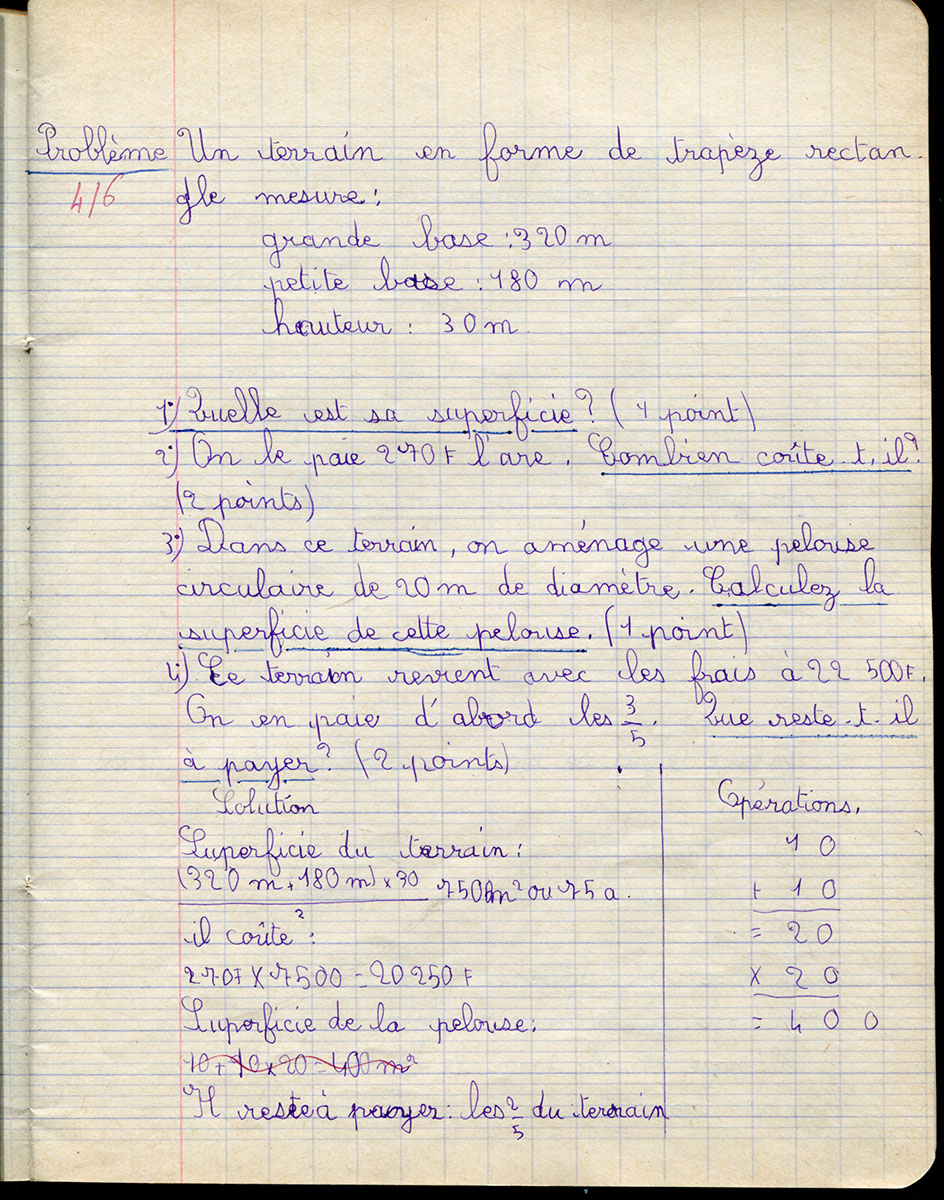 Problème Un terrain en forme de trapèze rectan-
4/6 gle mesure:
grande base : 320 m
petite base : 180 m
hauteur : 30 m
1°) Quelle est sa superficie? (1 point)
2°) On le paie 270F l'are. Combien coûte t. il?
(2 points)
3°) Dans ce terrain, on aménage une pelouse
circulaire de 20 m de diamètre. Calculez la
superficie de cette pelouse. (1 point)
4°) Ce terrain revient avec les frais à 22 500F.
On en paie d'abord les 3/5. Que reste-t-il
à payer? (2 points)
Solution
Opérations.
Superficie du terrain:
(320 m + 180 m) × 30 7500m² ou 75 a.
2
il coûte :
270F X 7500 = 20 250 F
Superficie de la pelouse:
10 + 10 × 20 = 400 m²
Il reste à payer: les 2/5 du terrain
10
+ 10
= 20
x 20
= 400